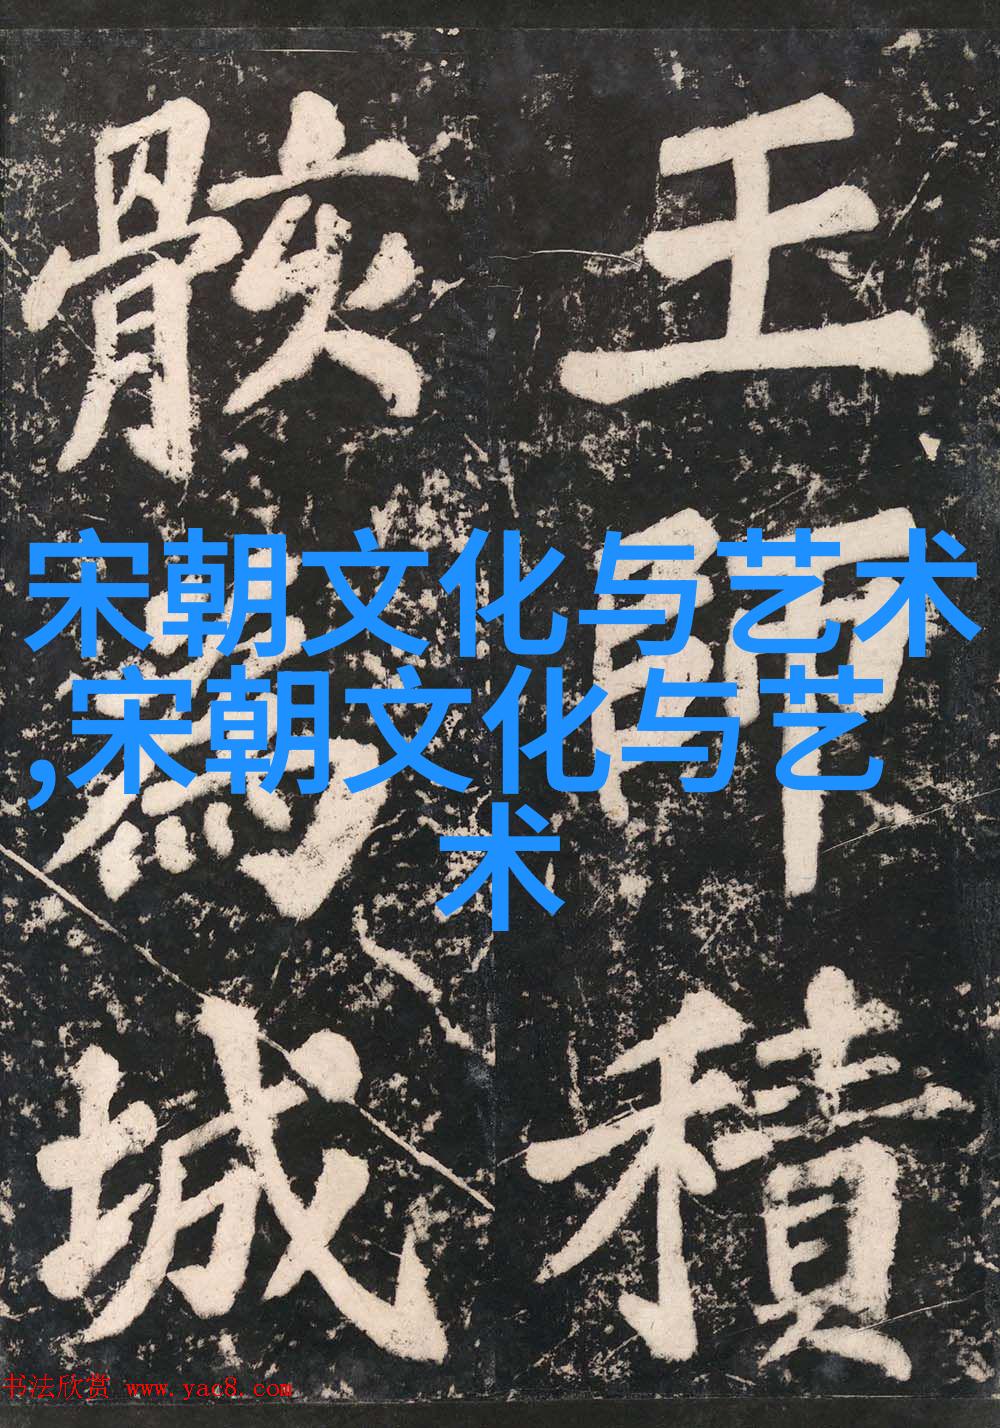 王師積
骸為城
宋朝文化与艺术
,宋朝文化与艺
术
书法欣赏 www.yac8.com